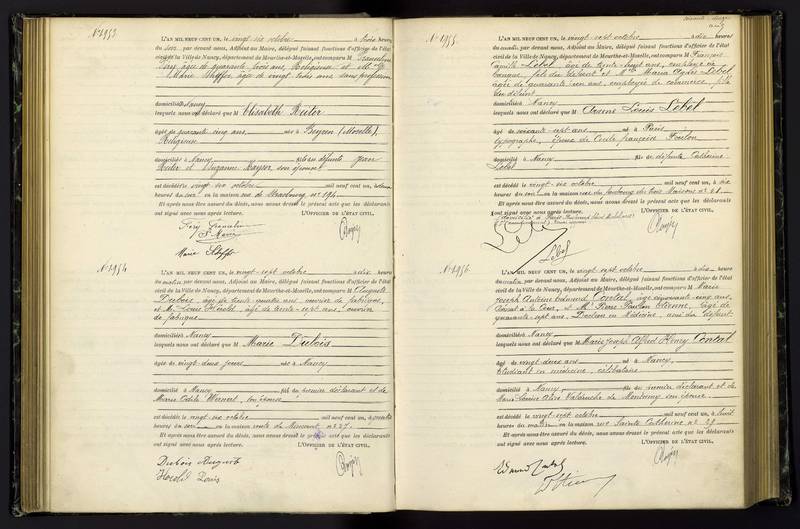 N° 1953
L'AN MIL NEUF CENT UN, le vingt six octobre à trois heures
du soir, par devant nous, Adjoint au Maire, délégué faisant fonctions d'officier de l'état
civil de la Ville de Nancy, département de Meurthe-et-Moselle, ont comparu M
âgée de quarante trois ans, Religieuse et M
Marie âgée de vingt trois ans sans profession
domiciliés à Nancy
lesquels nous ont déclaré que M Elisabeth Reiter
âgée de quarante cinq ans née à (Moselle),
Religieuse
domiciliée à Nancy fille de défunts Jean
Reiter et Suzanne son épouse
est décédée le vingt six octobre mil neuf cent un, à
heures du soir en sa maison rue de Strasbourg n° 194
Et après nous être assuré du décès, nous avons dressé le présent acte que les déclarants
ont signé avec nous après lecture. L'OFFICIER DE L'ÉTAT CIVIL,
N° 1954
L'AN MIL NEUF CENT UN, le vingt-sept octobre à dix heures
du matin, par devant nous, Adjoint au Maire, délégué faisant fonctions d'officier de l'état
civil de la Ville de Nancy, département de Meurthe-et-Moselle, ont comparu M Auguste
Dubois, âgé de trente quatre ans ouvrier de fabrique,
et M. Louis Herold, âgé de trente-sept ans, ouvrier
de fabrique
domiciliés à Nancy
lesquels nous ont déclaré que M Marie Dubois
âgée de vingt-deux jours née à Nancy
domiciliée à Nancy fille du premier déclarant et de
Marie Odile son épouse
est décédée le vingt six octobre mil neuf cent un, à quatre
heures du soir en sa maison route de n° 27.
Et après nous être assuré du décès, nous avons dressé le présent acte que les déclarants
ont signé avec nous après lecture. L'OFFICIER DE L'ÉTAT CIVIL,
Dubois Auguste
Herold Louis
N° 1955
L'AN MIL NEUF CENT UN, le vingt-sept octobre à dix heures
du matin, par devant nous, Adjoint au Maire, délégué faisant fonctions d'officier de l'état
civil de la Ville de Nancy, département de Meurthe-et-Moselle, ont comparu M François
Camille Lebel, âgé de trente huit ans, employé de
banque, fils du défunt et Maria Lebel
âgée de quarante un ans, employée de commerce, fille
du défunt
domiciliés à Nancy
lesquels nous ont déclaré que M Louis Lebel
âgé de soixante-sept ans né à Paris
typographe, époux de Françoise
domicilié à Nancy fils de défunte Catherine
Lebel
est décédé le vingt-six octobre mil neuf cent un, à dix
heures du soir en sa maison rue du faubourg des trois Maisons n°
Et après nous être assuré du décès, nous avons dressé le présent acte que les déclarants
ont signé avec nous après lecture. L'OFFICIER DE L'ÉTAT CIVIL,
Lebel
N° 1956
L'AN MIL NEUF CENT UN, le vingt sept octobre à dix heures
du matin, par devant nous, Adjoint au Maire, délégué faisant fonctions d'officier de l'état
civil de la Ville de Nancy, département de Meurthe-et-Moselle, ont comparu M Marie
Joseph Antoine Edmond Contal, âgé cinquante-cinq ans,
Avocat à la Cour, et M. Pierre Etienne, âgé de
quarante-sept ans, Docteur en Médecine, ami du défunt
domiciliés à Nancy
lesquels nous ont déclaré que M Marie Joseph Alfred Henry Contal
âgé de vingt deux ans né à Nancy,
étudiant en médecine, célibataire
domicilié à Nancy fils du premier déclarant et de
Marie Louise de son épouse
est décédé le vingt-sept octobre mil neuf cent un, à huit
heures du matin en sa maison rue Sainte Catherine n°
Et après nous être assuré du décès, nous avons dressé le présent acte que les déclarants
ont signé avec nous après lecture. L'OFFICIER DE L'ÉTAT CIVIL,